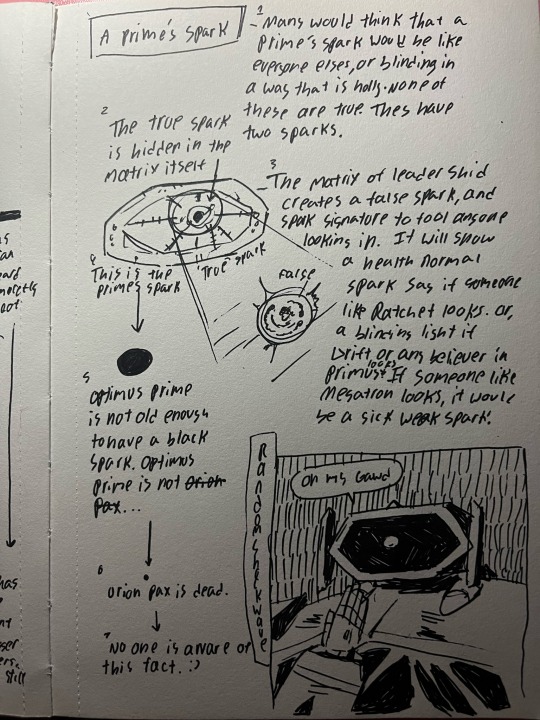 A Prime's Spark
1
- Mans would think that a
Prime's spark would be like
everyone elses, or blinding in
a was that is holls. None of
these are true. Thes have
two sparks.
2
The true spark
is hidden in the
matrix itself
3
- The matrix of leadership
creates a false spark, and
spark signature to fool anyone
looking in. It will show
a health normal
spark say if someone
like Ratchet looks. or,
a blinding light if
Drift or ans believer in
primus looks. If someone like
Megatron looks, it would
be a sick weak spark.
4
This is the
prime's spark
"True" spark
False
5
Optimus prime
is not old enough
to have a black
spark. Optimus
prime is not Orion
Pax...
6
Orion pax is dead.
7
No one is aware of
this fact. :)
Random shockwave
Oh ms Gawd